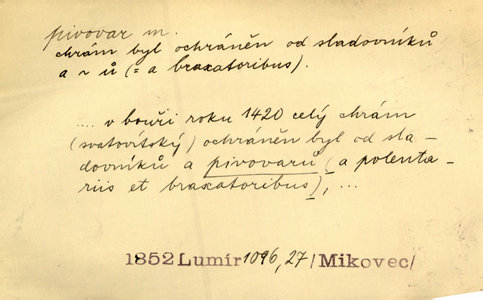 pivovar m.
chrám byl ochráněn od sladovníků
a ~ ů (= a braxatoribus).
.... v bouři roku 1420 celý chrám
(svatovítský) ochráněn byl od sla-
dovníků a pivovarů (a polenta-
riis et braxatoribus), ...
1852 Lumír 1096,27/Mikovec/